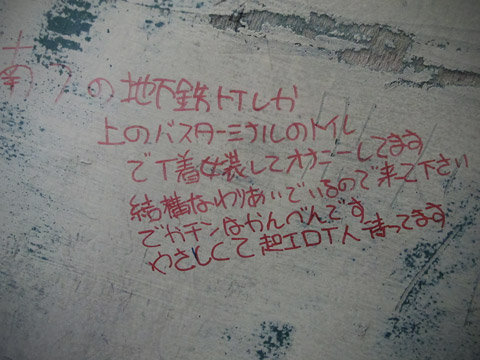 の地下鉄トイレか
上のバスターミナルのトイレ
で下着女装してオナニーしてます
結構なわりあいでいるので来て下さい
でガチンなかんべんです
やさしくて超 待ってます